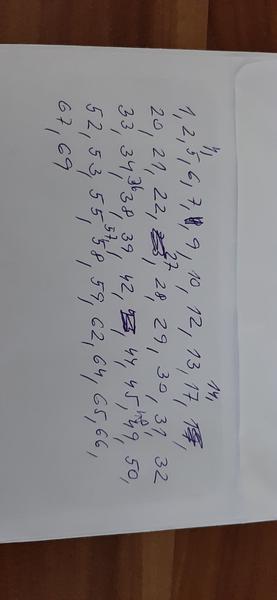 1, 2, 4, 5, 6, 7, 9, 10, 12, 13, 17, 14,
20, 21, 22, 27, 28, 29, 30, 31, 32
33, 34, 36, 38, 39, 42, 44, 45, 48, 49, 50,
52, 53, 55, 57, 58, 59, 62, 64, 65, 66,
67, 69